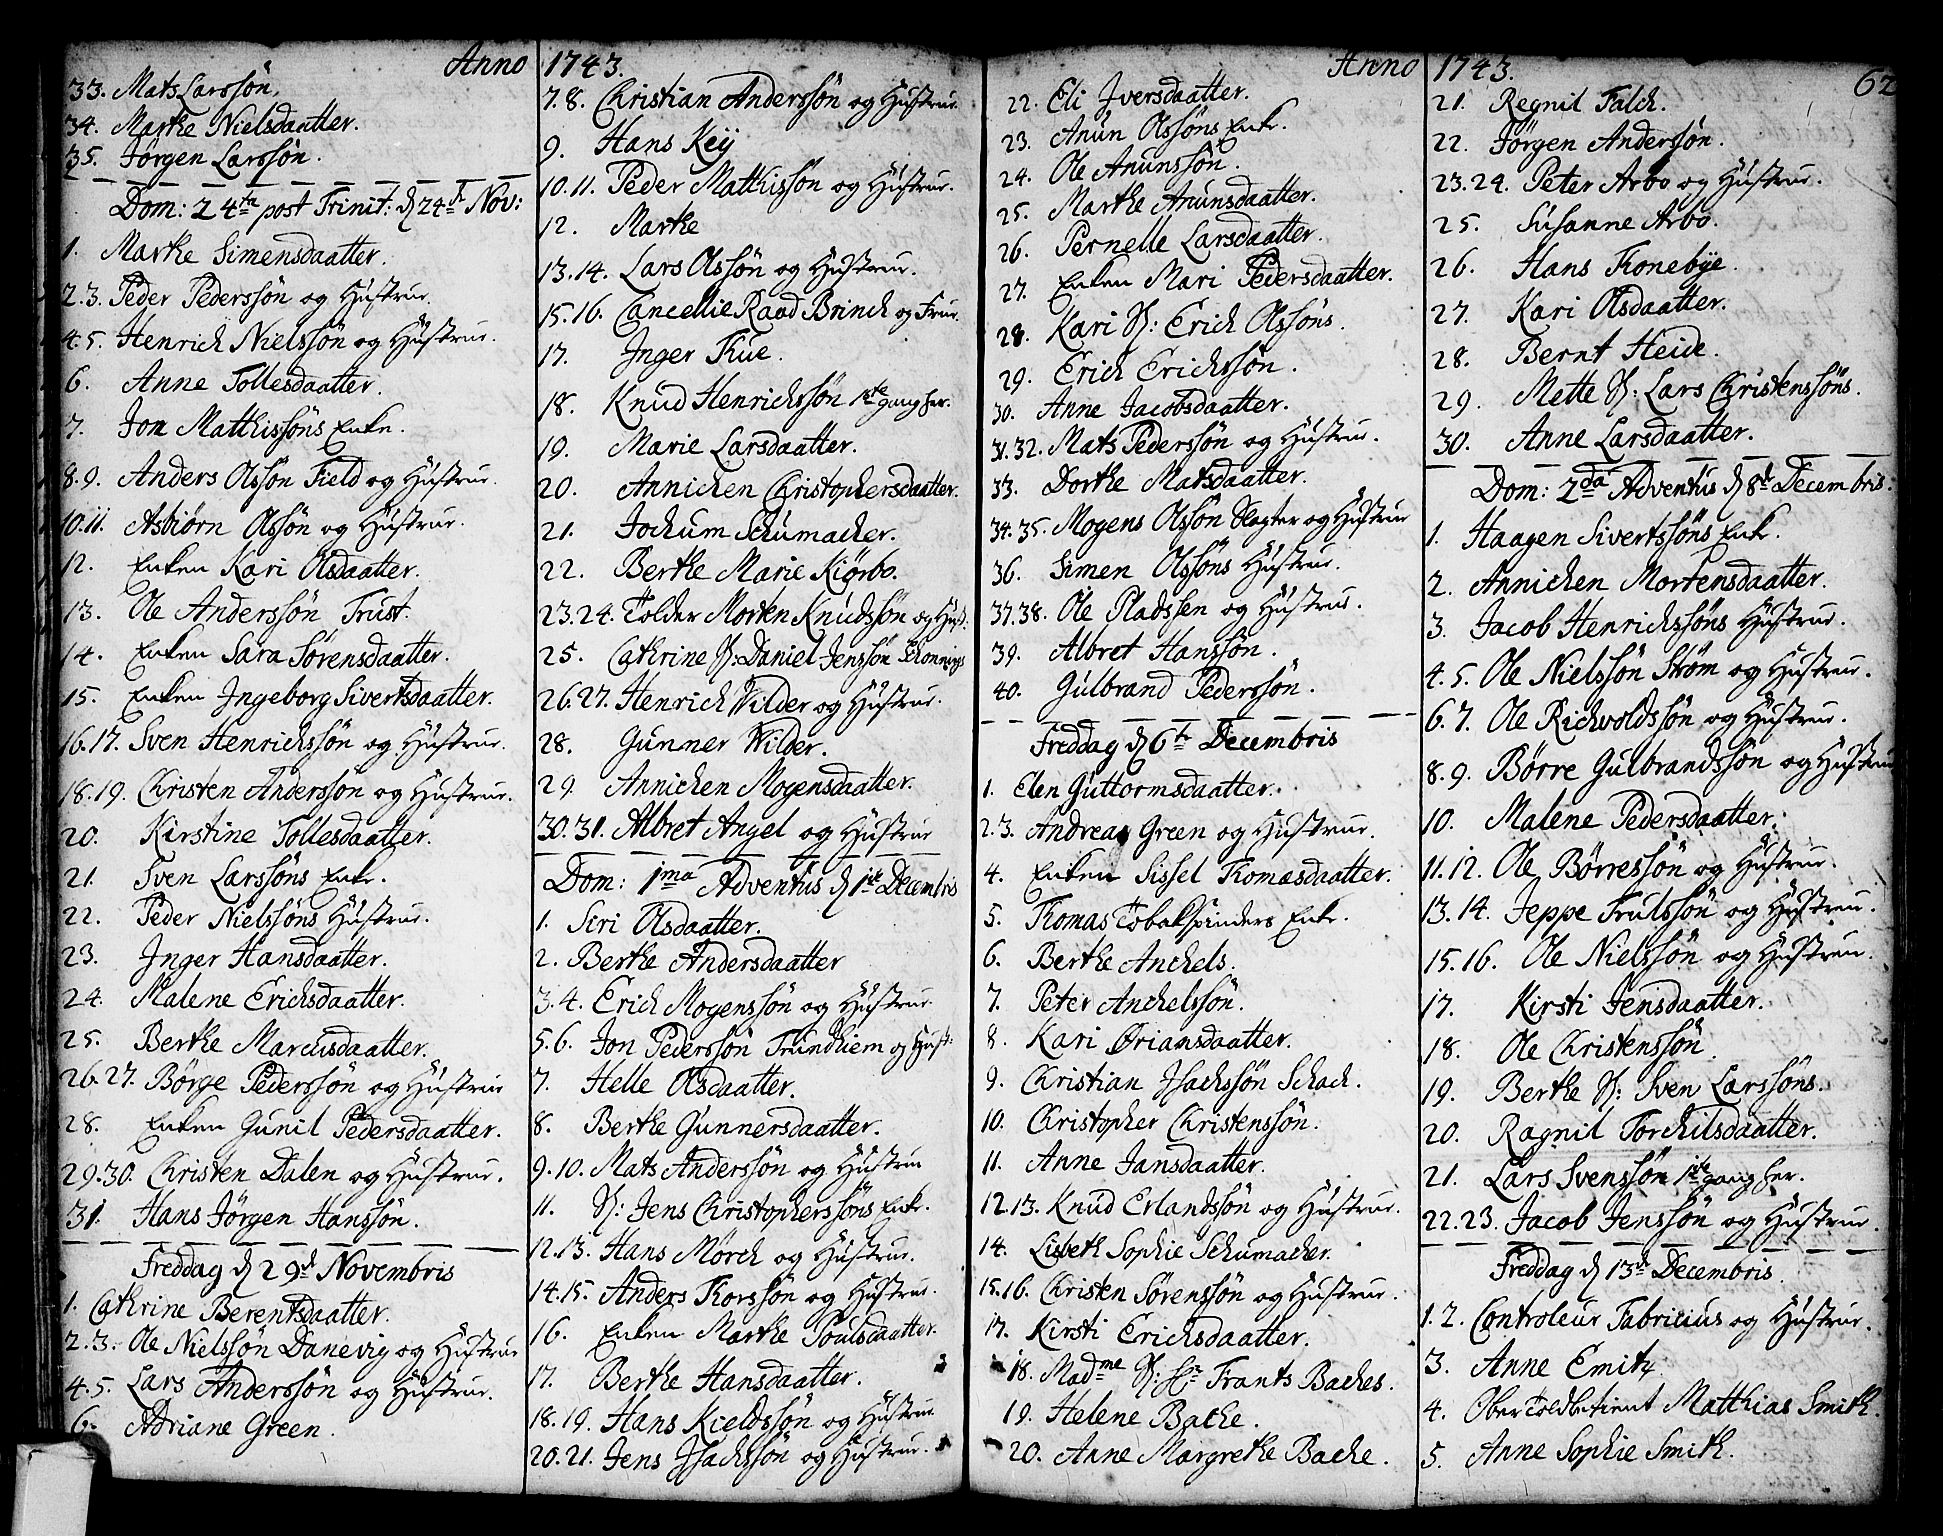 Anno 1743.
33. Mats Larssön.
34. Marthe Nielsdaatter.
35. Jörgen Larssön.
Dom: 24de post Trinit: d 24de Nov:
1. Marthe Simensdaatter.
2.3. Peder Pederssön og Hüstrur.
4.5. Henrich Nielssön og Hüstrur.
6. Anne Tollesdaatter.
7. Jon Matthissöns Enke.
8.9. Anders Olssön Field og Hüstrur.
10.11. Asbiörn Olssön og Hüstrur.
12. Enken Kari Olsdaatter.
13. Ole Anderssön Trüst.
14. Enken Sara Sörensdaatter.
15. Enken Ingeborg Sivertsdaatter.
16.17. Sven Henrichssön og Hüstrur.
18.19. Christen Anderssön og Hüstrur.
20. Kirstine Tollesdaatter.
21. Sven Larssöns Enke.
22. Peder Nielssöns Hüstrur.
23. Inger Hansdaatter.
24. Malene Erichsdaatter.
25. Berthe Marchsdaatter.
26.27. Börge Pederssön og Hüstrur
28. Enken Gunil Pedersdaatter.
29.30. Christen Dalen og Hüstrur.
31. Hans Jörgen Hanssön.
Freddag d 29de Novembris
1. Cathrine Berentsdaatter.
2.3. Ole Nielssön Danevig og Hüstrur
4.5. Lars Anderssön og Hüstrur.
6. Adriane Green.
7.8. Christian Anderssön og Hüstrur.
9. Hans Keÿ
10.11. Peder Matthissön og Hüstrur.
12. Marthe
13.14. Lars Olssön og Hüstrur.
15.16. Cancellie Raad Brinch og Frue.
17. Inger Thue.
18. Knud Henrichssön 1ste gang her.
19. Marie Larsdaatter.
20. Annichen Christophersdaatter.
21. Jochum Schumacher.
22. Berthe Marie Kiörbo.
23.24. Tolder Morten Knudssön og Hüst:
25. Cathrine S: Daniel Jenssön Schonnings
26.27. Henrich Wilder og Hüstrur.
28. Gunner Wilder.
29. Annichen Mogensdaatter.
30.31. Albret Angel og Hüstrur
Dom: 1ma Adventus d 1ste Decembris
1. Siri Olsdaatter.
2. Berthe Andersdaatter
3.4. Erich Mogenssön og Hüstrur
5.6. Jon Pederssön Trundhiem og Hust:
7. Helle Olsdaatter.
8. Berthe Gunnersdaatter.
9.10. Mats Anderssön og Hüstrur
11. S: Jens Christopherssöns Enke.
12.13. Hans Mörch og Hüstrur.
14.15. Anders Thorssön og Hüstrur.
16. Enken Marthe Poulsdaatter.
17. Berthe Hansdaatter.
18.19. Hans Kieldssön og Hüstrur
20.21. Jens Isachssön og Hüstrur.
Anno 1743. 62
22. Eli Iversdaatter.
23. Anün Olssöns Enke.
24. Ole Anünssön.
25. Marthe Anünsdaatter.
26. Pernelle Larsdaatter.
27. Enken Mari Pedersdaatter.
28. Kari S: Erich Olssöns.
29. Erich Erichssön.
30. Anne Jacobsdaatter.
31.32. Mats Pederssön og Hüstrur.
33. Dorthe Matsdaatter.
34.35. Mogens Olssön Slagter og Hüstrur
36. Simen Olssöns Hüstrur.
37.38. Ole Pladssen og Hüstrur.
39. Albret Hanssön.
40. Gülbrand Pederssön.
Freddag d 6te Decembris
1. Elen Güttormsdaatter.
2.3. Andreas Green og Hüstrur.
4. Enken Sissel Thomasdaatter.
5. Thomas Tobakspinders Enke.
6. Berthe Anchels.
7. Peter Anchelssön.
8. Kari Øriansdaatter.
9. Christian Isachssön Schach.
10. Christopher Christenssön.
11. Anne Jansdaatter.
12.13. Knud Erlandssön og Hüstrur.
14. Lisbeth Sophie Schumacher.
15.16. Christen Sörenssön og Hüstrur.
17. Kirsti Erichsdaatter.
18. Madme S: Hr Frants Baches.
19. Helene Bache.
20. Anne Margrethe Bache.
21. Regnil Falch.
22. Jörgen Anderssön.
23.24. Peter Arbo og Hüstrur.
25. Susanne Arbo.
26. Hans Thonebye.
27. Kari Olsdaatter.
28. Bernt Heide.
29. Mette S: Lars Christenssöns.
30. Anne Larsdaatter.
Dom: 2da Adventus d 8de Decembris.
1. Haagen Sivertssöns Enke.
2. Annichen Mortensdaatter.
3. Jacob Henrichssöns Hüstrur.
4.5. Ole Nielssön Ström og Hüstrur.
6.7. Ole Richvoldssön og Hüstrur.
8.9. Börre Gulbrandssön og Hüstrur
10. Malene Pedersdaatter.
11.12. Ole Börressön og Hüstrur.
13.14. Jeppe Trulssön og Hüstrur.
15.16. Ole Nielssön og Hüstrur.
17. Kirsti Jensdaatter.
18. Ole Christenssön.
19. Berthe S: Sven Larssöns.
20. Ragnil Torchilsdaatter.
21. Lars Svenssön 1ste gang her.
22.23. Jacob Jenssön og Hüstrur.
Freddag d 13de Decembris.
1.2. Controleur Fabricius og Hüstrur.
3. Anne Emitz
4. Ober Toldbetient Matthias Smith.
5. Anne Sophie Smith.